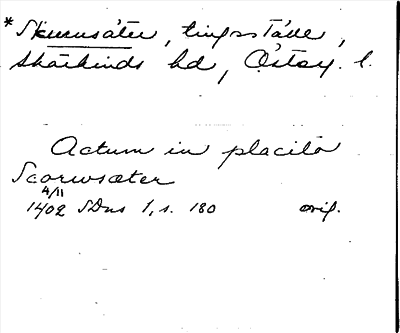 *Skeuusäter, tingsställe,
Skärkinds hd, Östog. l.
Actum in placito
Scorwsæter
4/11
1402 SDns 1, s. 180 orig.